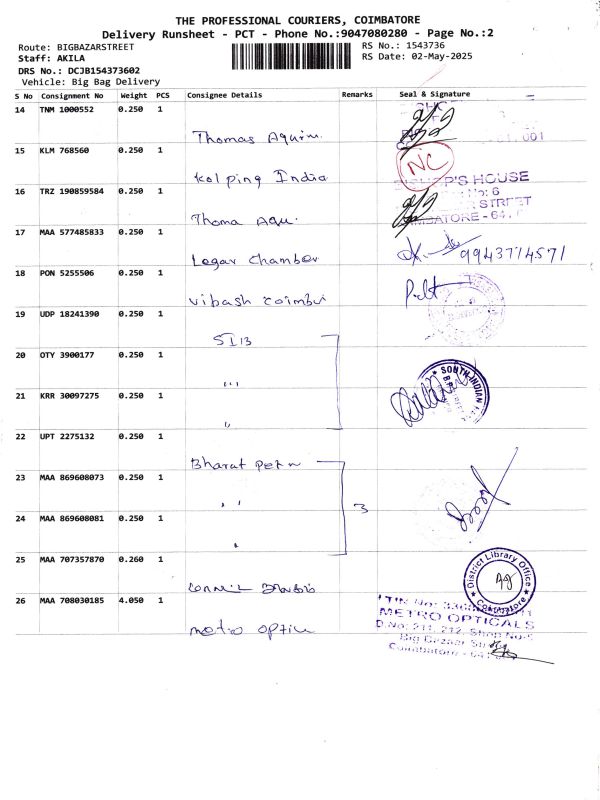 THE PROFESSIONAL COURIERS, COIMBATORE
Delivery Runsheet - PCT - Phone No.:9047080280 - Page No.:2
Route: BIGBAZARSTREET
RS No.: 1543736
Staff: AKILA
RS Date: 02-May-2025
DRS No.: DCJB154373602
Vehicle: Big Bag Delivery
S No Consignment No Weight PCS Consignee Details Remarks Seal & Signature
14 TNM 1000552 0.250 1
Thomas
15 KLM 768560 0.250 1
Kolping India
NC
BISHOP'S HOUSE
16 TRZ 190859584 0.250 1
STREET
Thoma Aqu.
17 MAA 577485833 0.250 1
Legar Chamber
9943774571
18 PON 5255506 0.250 1
Vibash
19 UDP 18241390 0.250 1
SIB
20 OTY 3900177 0.250 1
"
SOUTH INDIAN
21 KRR 30097275 0.250 1
"
22 UPT 2275132 0.250 1
Bharat Petn
23 MAA 869608073 0.250 1
"
3
24 MAA 869608081 0.250 1
"
25 MAA 707357870 0.260 1
District Library Office
Coimbatore
26 MAA 708030185 4.050 1
METRO OPTICALS
metro optica
D.No: 211, 212, Shop No-5
Big Bazaar
Coimbatore - 641